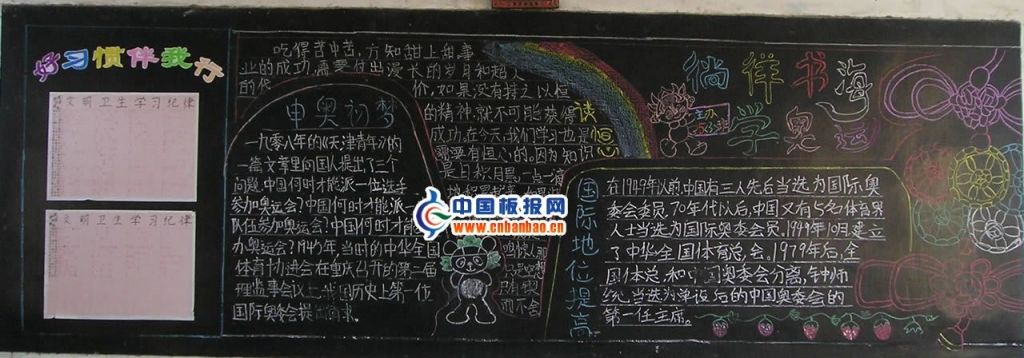 好习惯伴我行
文明 卫生 学习 纪律
文明 卫生 学习 纪律
吃得苦中苦,方知甜上甜,事
业的成功,需要付出漫长的岁月和超
的代
价,如果没有持之以恒
的精神,就不可能获得
成功,在今天,我们学习也是
需要有恒心的。因为知识
是日积月累,一点一滴
读恒心
申奥初梦
一九零八年的《天津青年》的
一篇文章里向国人提出了三个
问题,中国何时才能派一位选手
参加奥运会?中国何时才能派一
队伍参加奥运会?中国何时才
办奥运会?1945年,当时的中华全国
体育协进会在重庆召开的第二届
理监事会议上,我国历史上第一位
国际奥委会
中国板报网
www.cnbanbao.cn
徜徉书海
学奥运
国际地位提高
在1949年以前中国有三人先后当选为国际奥
委会委员,70年代以后,中国又有5名体育界
人士当选为国际奥委会委员,1949年10月建立
了中华全国体育总会。1979年后,全
国体总和中国奥委会分离,钟师
统当选为单设后的中国奥委会的
第一任主席。